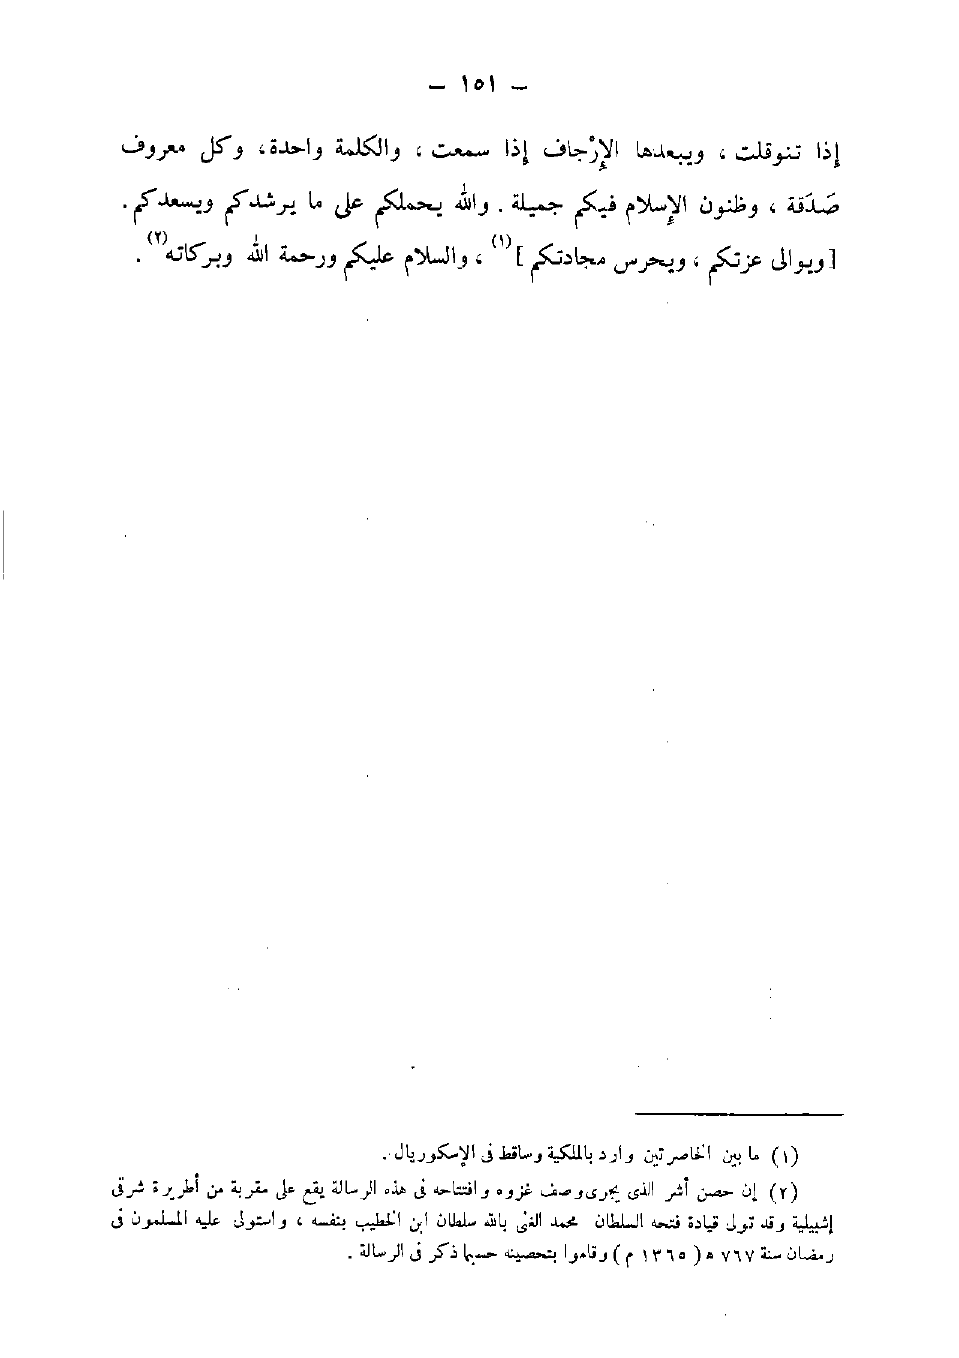 — ١٥١ —
إذا تنوقلت ، ويبعدها الإرْجاف إذا سمعت ، والكلمة واحدة ، وكل معروف
صَدَقة ، وظنون الإسلام فيكم جميلة . والله يحملكم على ما يرشدكم ويسعدكم .
[ ويوالى عزتكم ، ويحرس مجادتكم ](١) ، والسلام عليكم ورحمة الله وبركاته(٢) .
(١) ما بين الخاصرتين وارد بالملكية وساقط فى الإسكوريال .
(٢) إن حصن أشر الذى يجرى وصف غزوه وافتتاحه فى هذه الرسالة يقع على مقربة من أطريرة شرقى
إشبيلية وقد تولى قيادة فتحه السلطان محمد الغنى بالله سلطان ابن الخطيب بنفسه ، واستولى عليه المسلمون فى
رمضان سنة ٧٦٧ هـ ( ١٣٦٥ م ) وقاموا بتحصينه حسبما ذكر فى الرسالة .